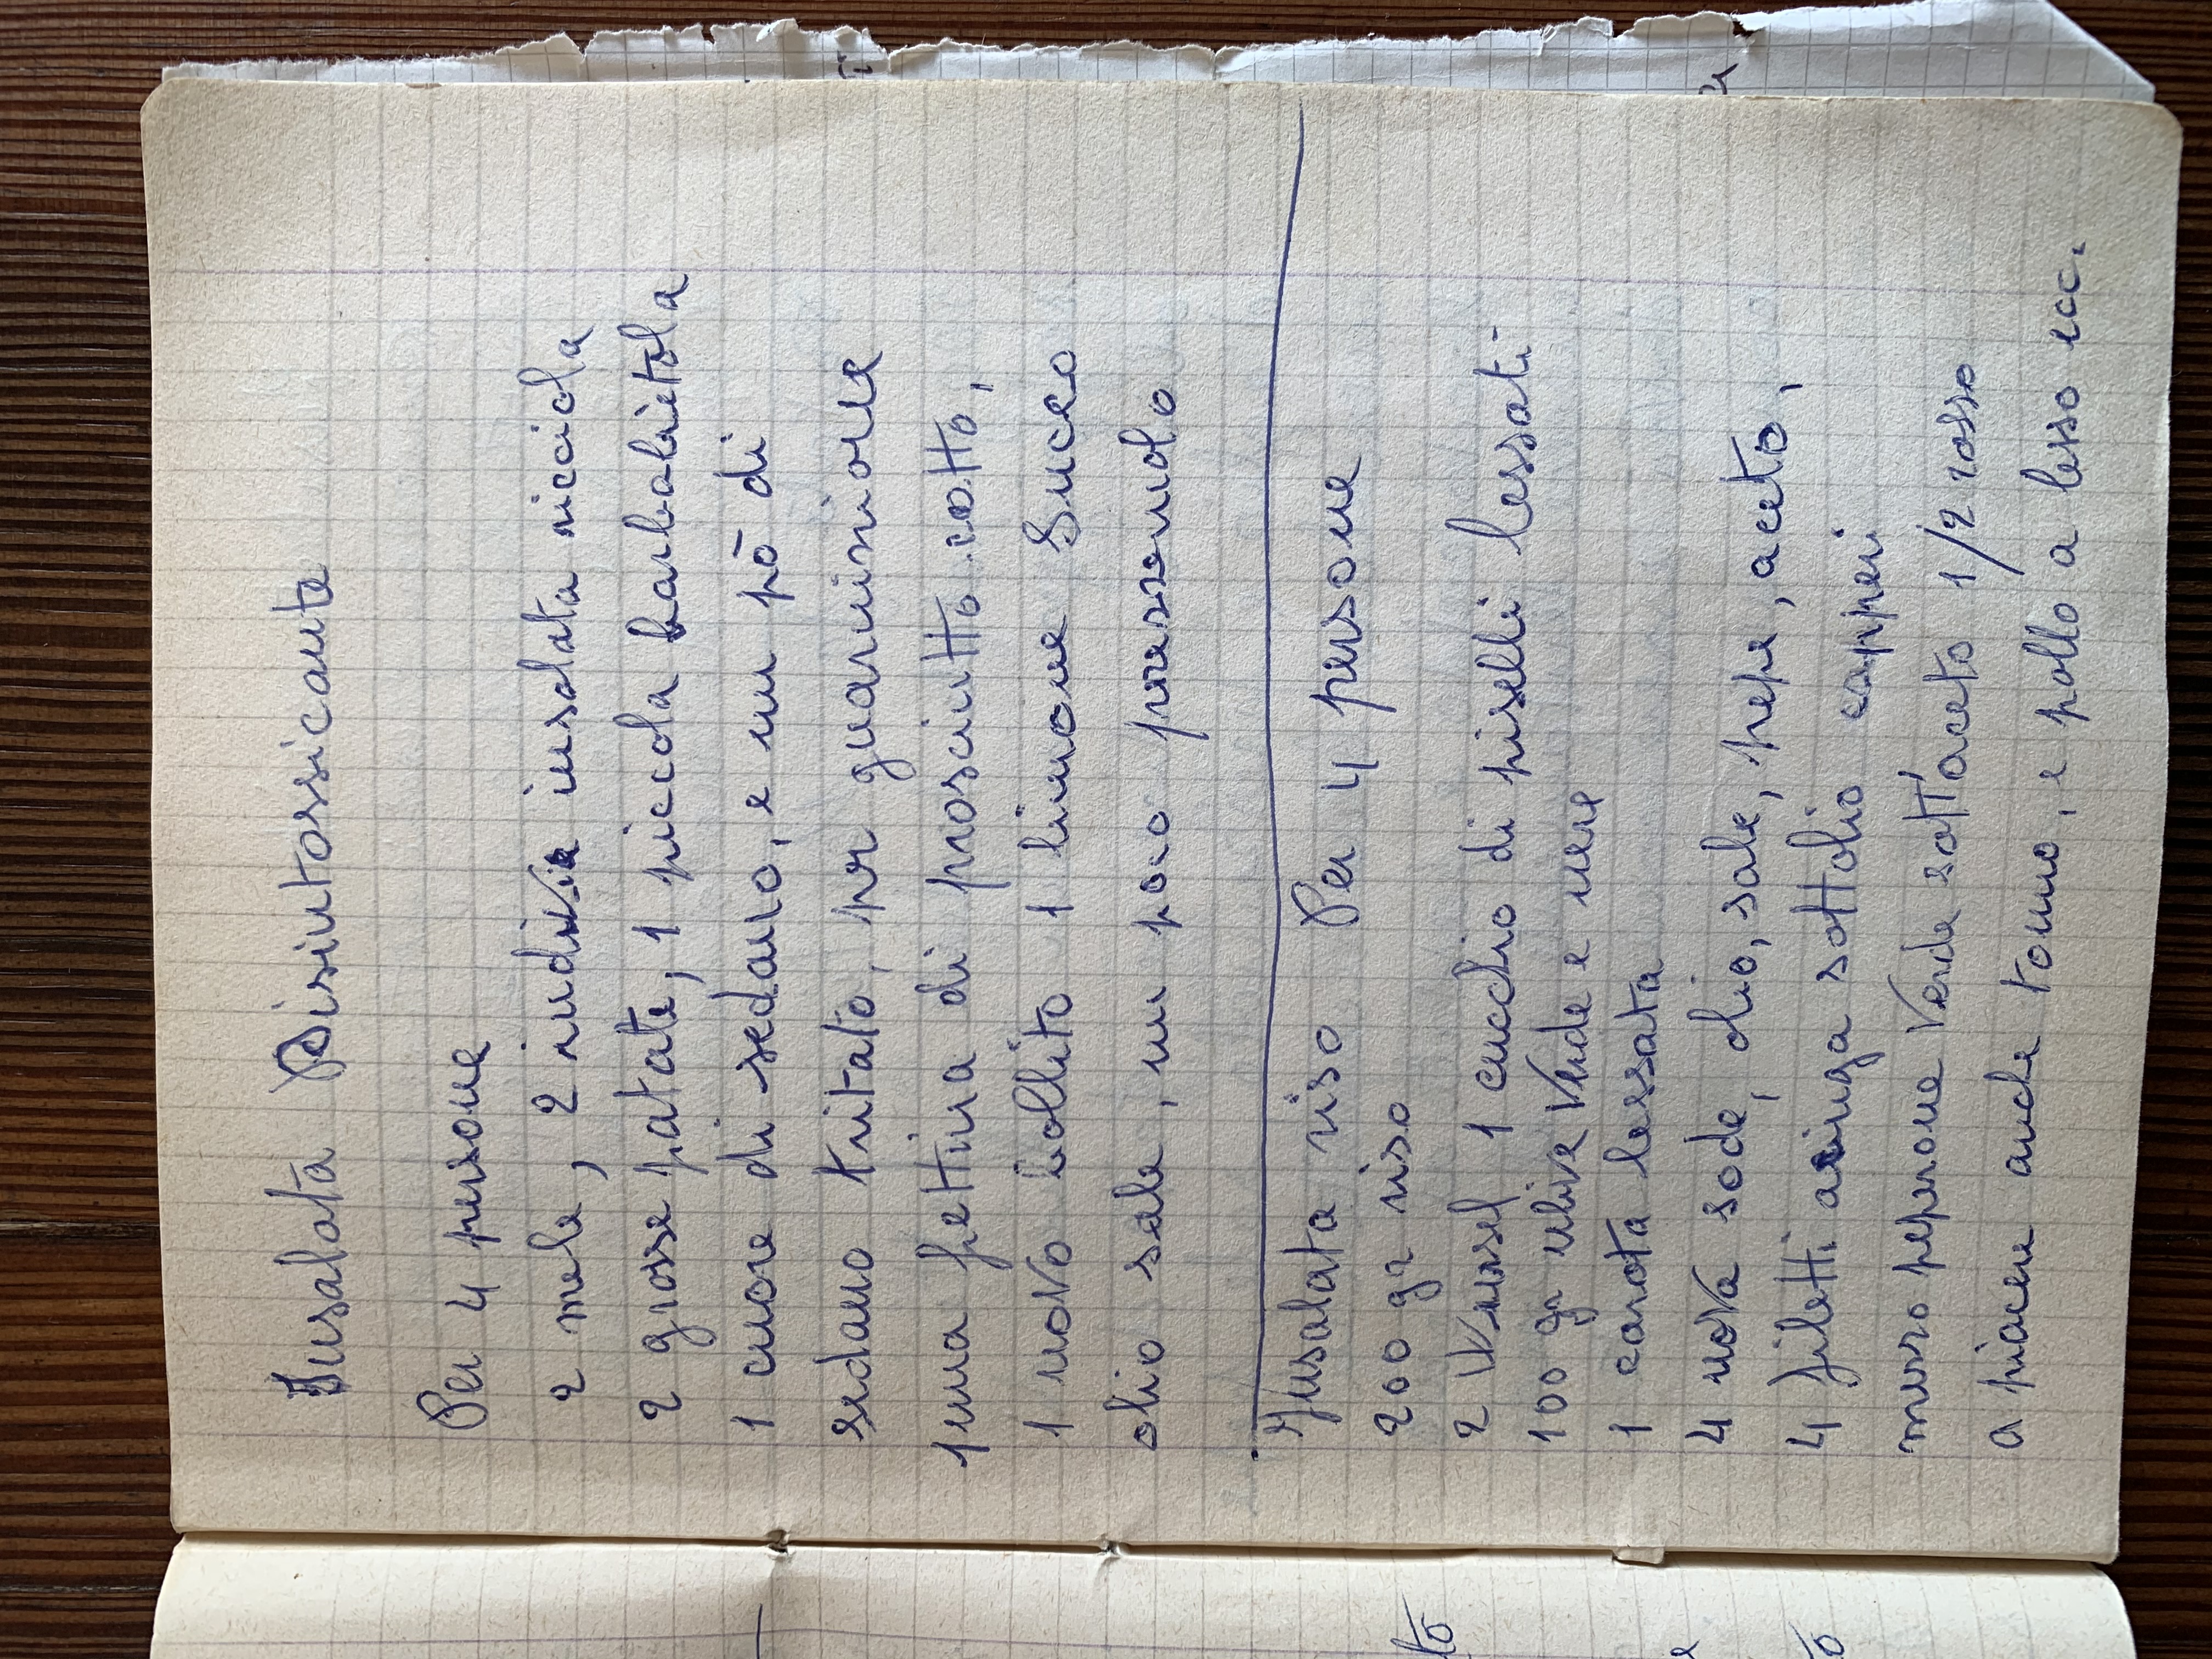 Insalata Disintossicante
Per 4 persone
2 mele, 2 indivie insalata ricciola
2 grosse patate, 1 piccola barbabietola
1 cuore di sedano, e un pò di
sedano tritato, per guarnizione
1 una fettina di prosciutto cotto,
1 uovo bollito 1 limone Succo
olio sale, un poco prezzemolo
Insalata riso Per 4 persone
200 gr riso
2 Wursel 1 cucchio di piselli lessati
100 gr ulive verde e nere
1 carota lessata
4 uova sode, olio, sale, pepe, aceto,
4 filetti acciuga sottolio capperi
mezzo peperone verde sott'aceto 1/2 rosso
a piacere anche tonno, e pollo a lesso ecc.
to
e